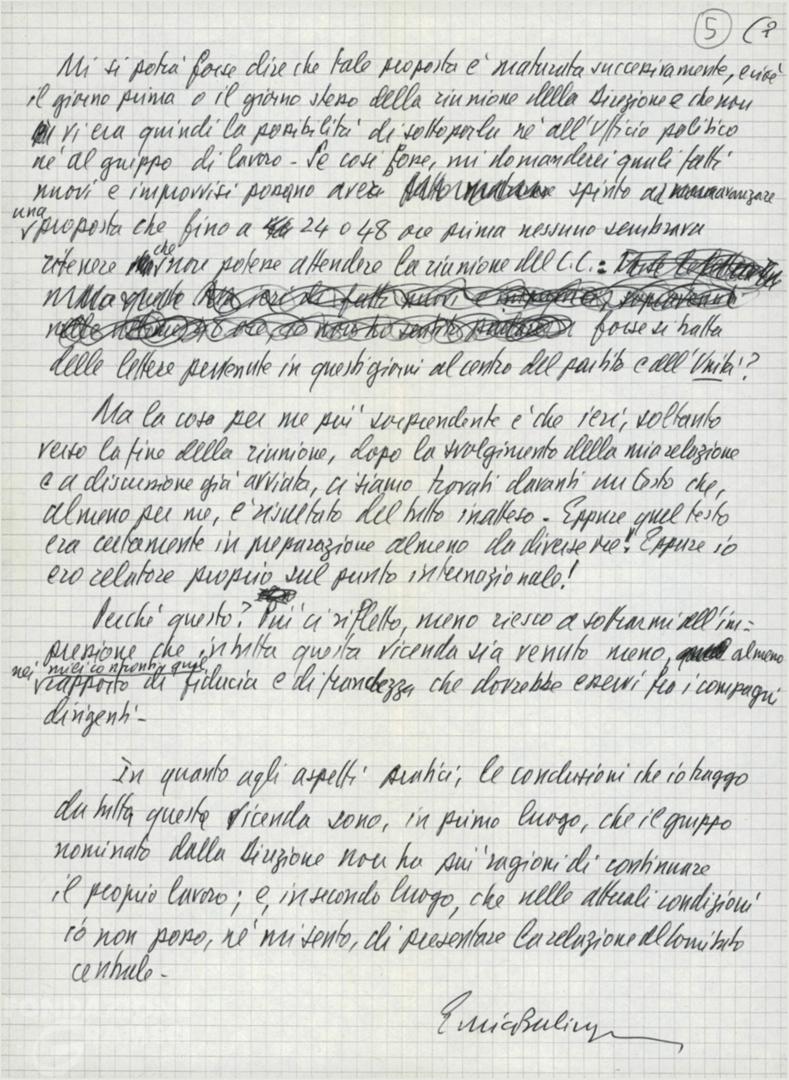 5
Mi si potrà forse dire che tale proposta è maturata successivamente, e cioè
il giorno prima o il giorno stesso della riunione della Direzione e che non
vi era quindi la possibilità di sottoporla né all'Ufficio politico
né al gruppo di lavoro - Se così fosse, mi domanderei quali fatti
nuovi e improvvisi possano aver spinto ad avanzare
una
proposta che fino a 24 o 48 ore prima nessuno sembrava
ritenere che non potesse attendere la riunione del C.C.:
forse si tratta
delle lettere pervenute in questi giorni al centro del partito e all'Unità?
Ma la cosa per me più sorprendente è che ieri, soltanto
verso la fine della riunione, dopo lo svolgimento della mia relazione
e a discussione già avviata, ci siamo trovati davanti un testo che,
almeno per me, è risultato del tutto inatteso - Eppure quel testo
era certamente in preparazione almeno da diverse ore! Eppure io
ero relatore proprio sul punto internazionale!
Perché questo? Più ci rifletto, meno riesco a sottrarmi all'im=
pressione che in tutta questa vicenda sia venuto meno, almeno
nei miei confronti, quel
rapporto di fiducia e di franchezza che dovrebbe esservi fra i compagni
dirigenti -
In quanto agli aspetti pratici, le conclusioni che io traggo
da tutta questa vicenda sono, in primo luogo, che il gruppo
nominato dalla Direzione non ha più ragioni di continuare
il proprio lavoro; e, in secondo luogo, che nelle attuali condizioni
io non posso, né mi sento, di presentare la relazione al Comitato
centrale -
Enrico Berlinguer